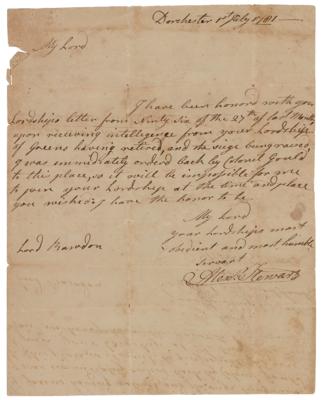 Dorchester 1st July 1781
My Lord
I have been honord with your
Lordships letter from Ninty Six of the 27th of last Month,
upon recieving intelligence from your Lordship
of Greens having retired, and the siege being raised,
I was immediately orderd back by Colonel Gould
to this place, so it will be impossible for me
to join your Lordship at the time and place
you wished, I have the honor to be
My Lord
your Lordships most
obedient and most humble
servant
Alexr Stewart
Lord Rawdon